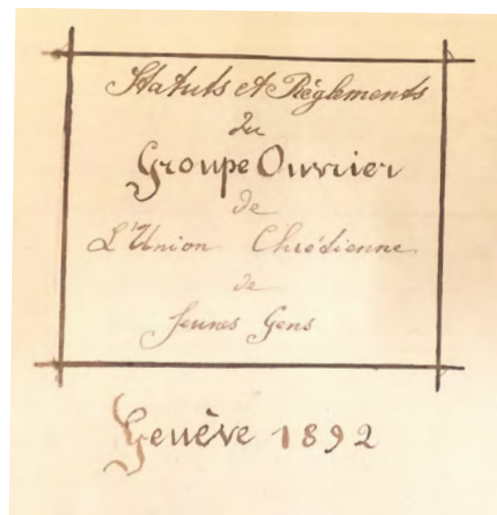 Statuts et Règlements
du
Groupe Ouvrier
de
L'Union Chrétienne
de
Jeunes Gens
Genève 1892